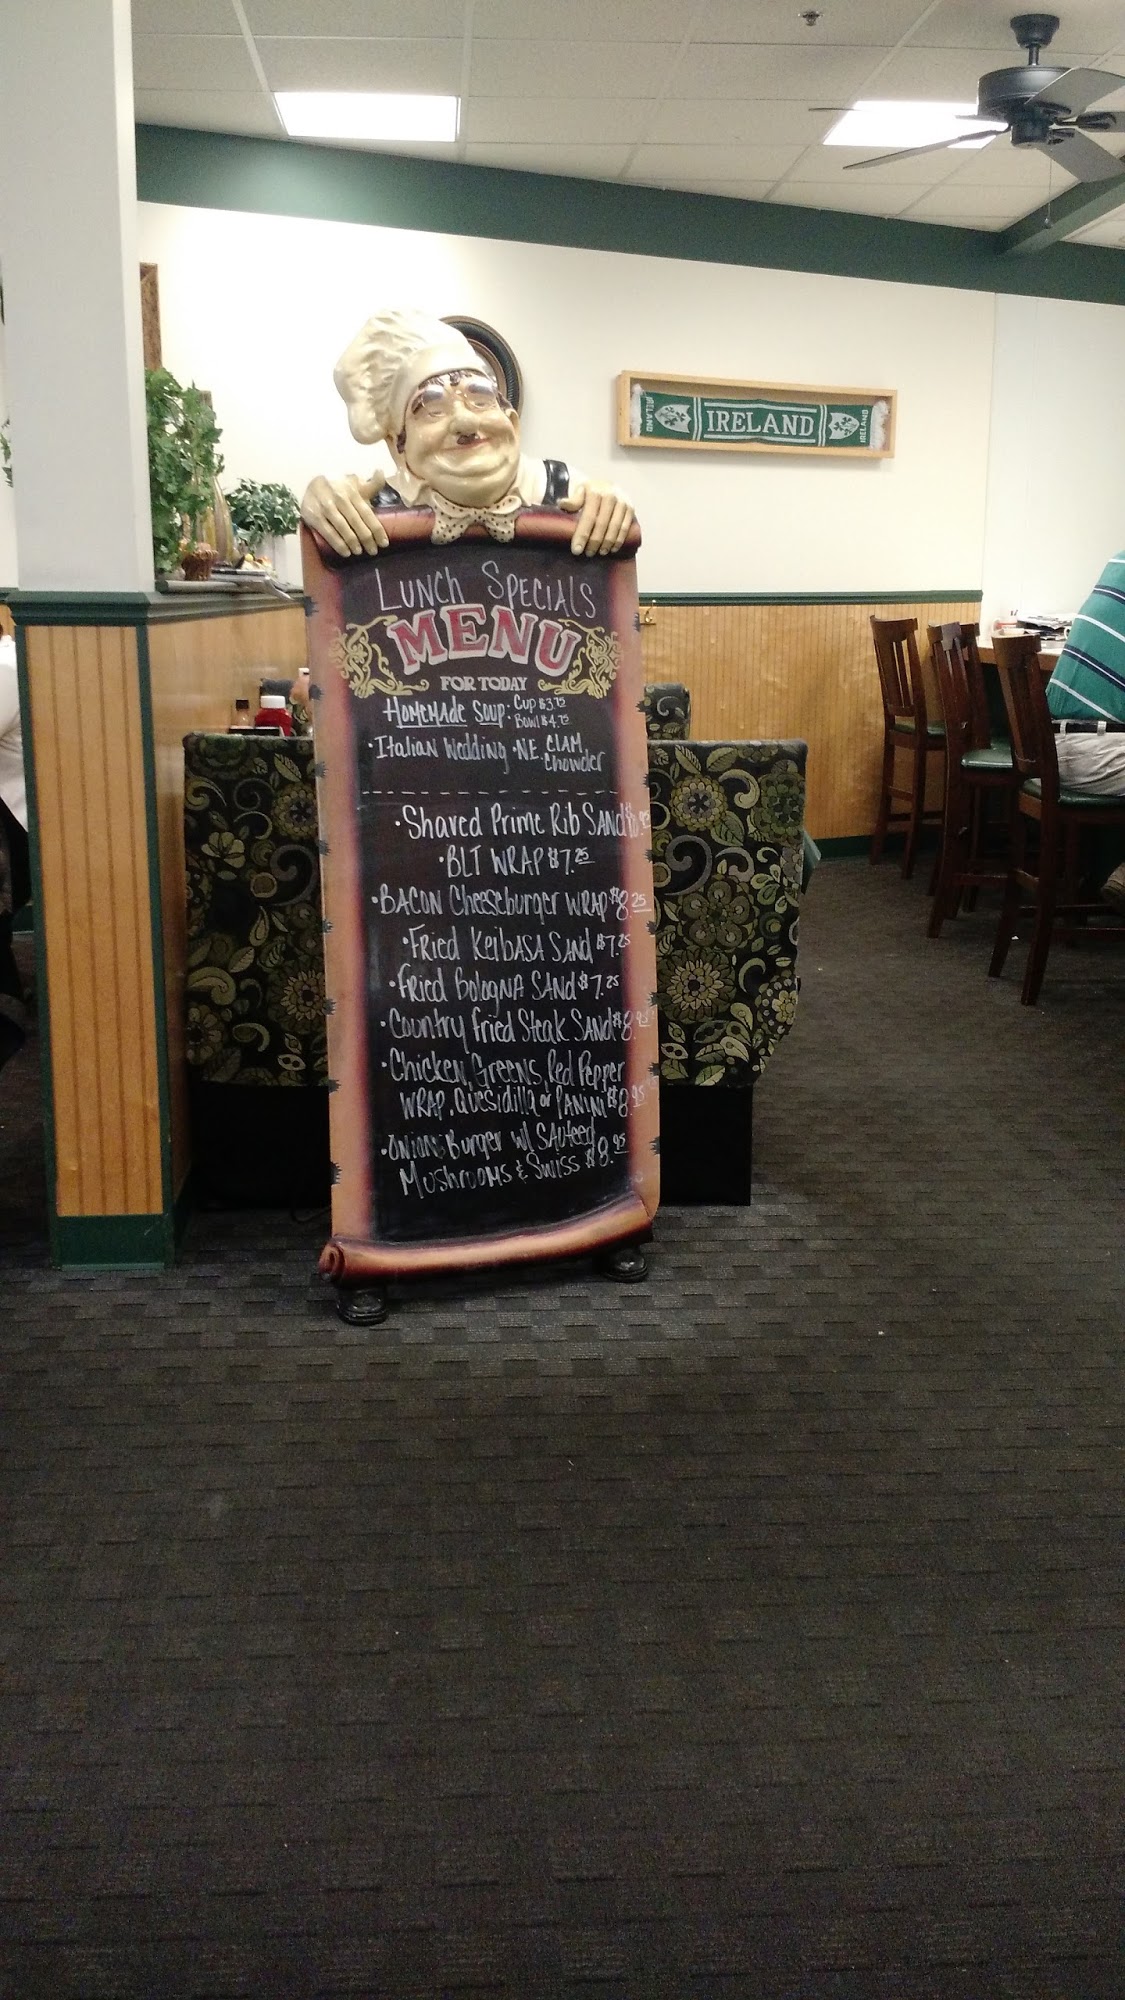 IRELAND
IRELAND
IRELAND
LUNCH SPECIALS
MENU
FOR TODAY
HOMEMADE SOUP · Cup $3.75
Bowl $4.75
· Italian Wedding · N.E. CLAM
Chowder
· Shaved Prime Rib SAND
· BLT WRAP $7.25
· BACON Cheeseburger WRAP $8.25
· Fried KeibASA SAND $7.25
· Fried Bologna SAND $7.25
· Country fried Steak SAND $8.95
· Chicken, Greens, Red Pepper
WRAP, Quesidilla or PANINI $8.95
· Onions Burger w/ SAUTEED
MUSHROOMS & Swiss $8.95